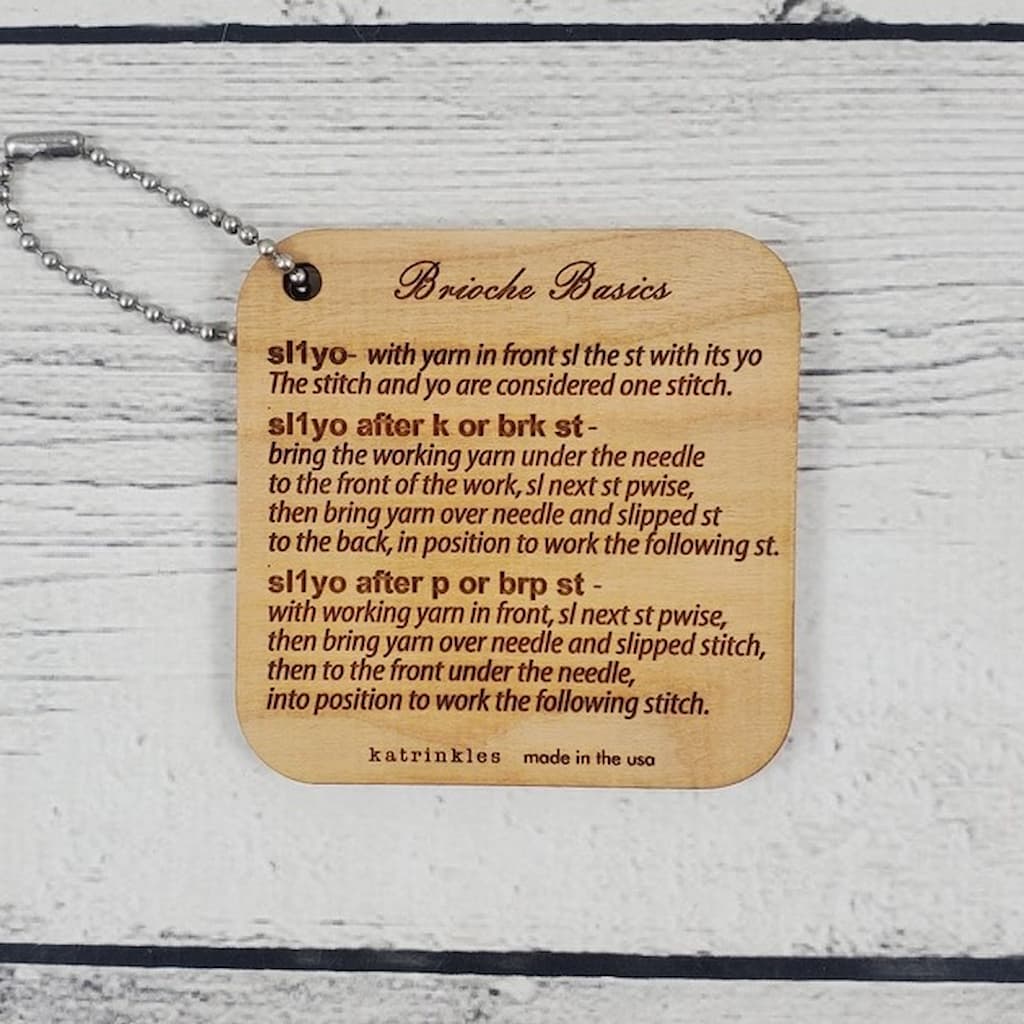 Brioche Basics
sl1yo- with yarn in front sl the st with its yo
The stitch and yo are considered one stitch.
sl1yo after k or brk st-
bring the working yarn under the needle
to the front of the work, sl next st pwise,
then bring yarn over needle and slipped st
to the back, in position to work the following st.
sl1yo after p or brp st -
with working yarn in front, sl next st pwise,
then bring yarn over needle and slipped stitch,
then to the front under the needle,
into position to work the following stitch.
katrinkles made in the usa